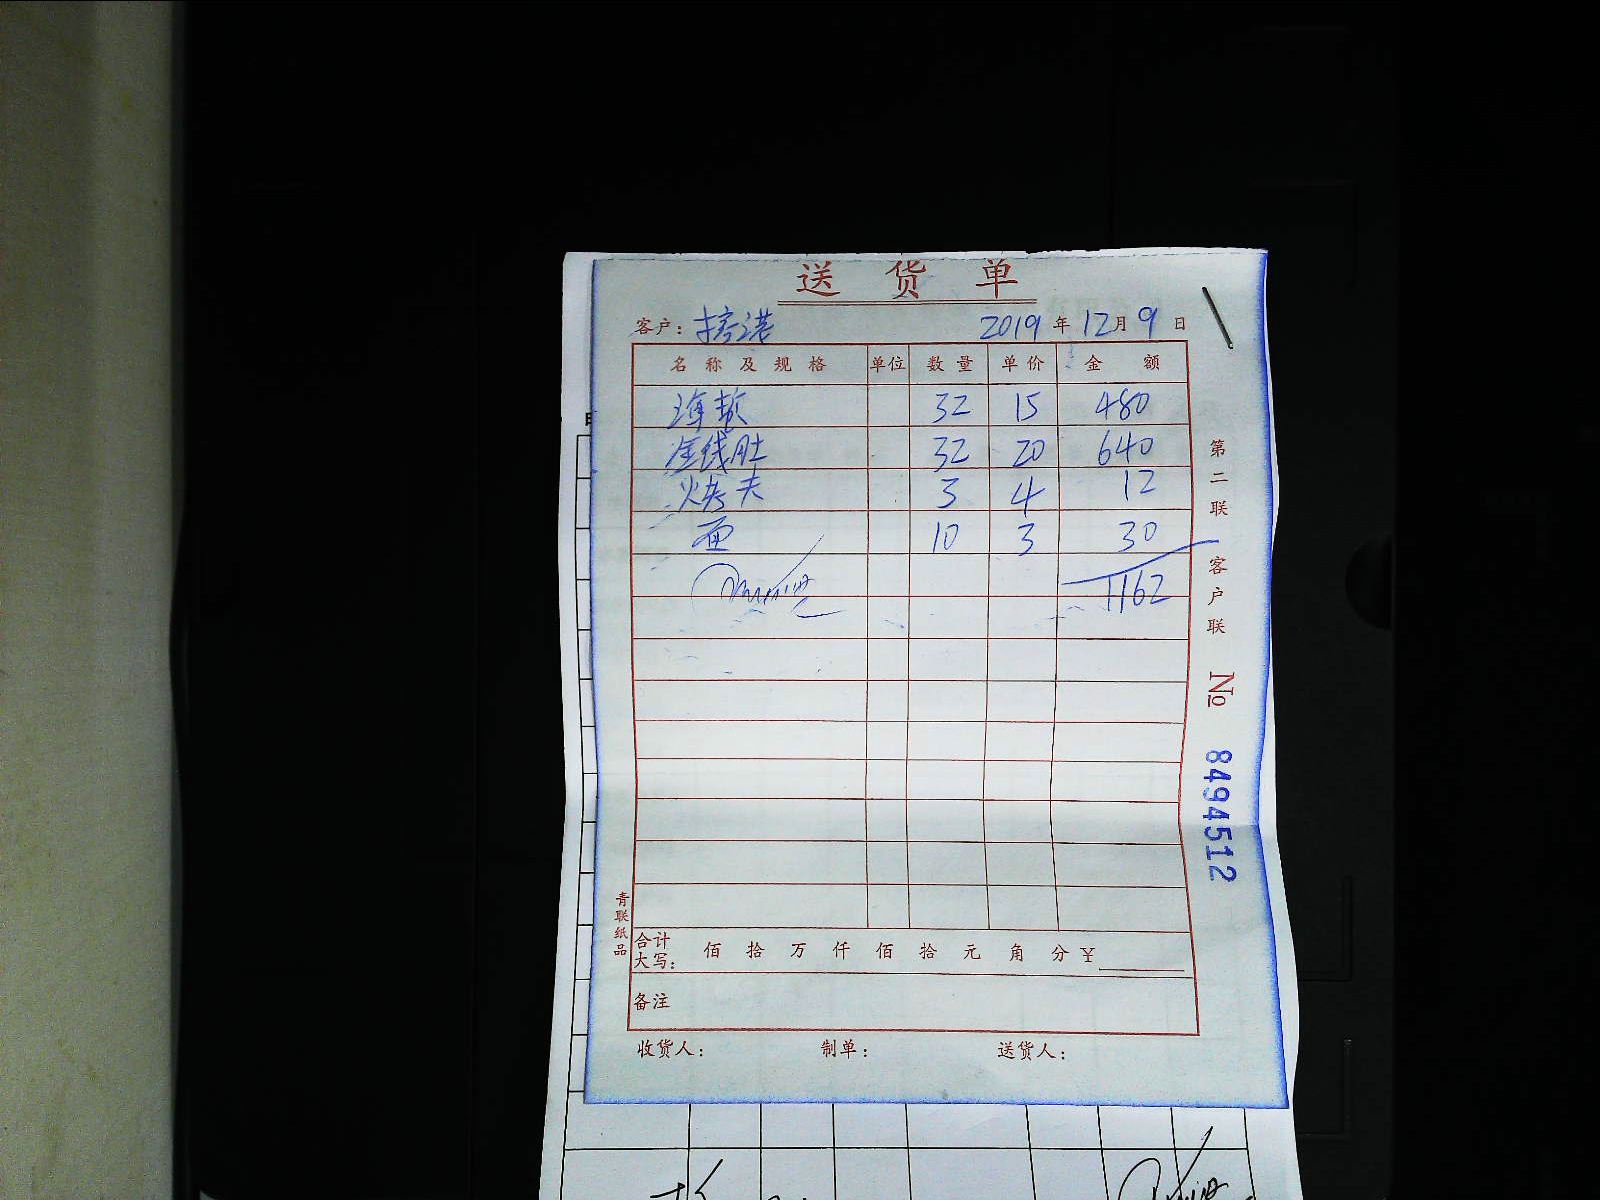 送 货 单
客户： 2019 年 12 月 9 日
名 称 及 规 格 单位 数 量 单 价 金 额
32 15 480
金钱肚 32 20 640
烤夫 3 4 12
面 10 3 30
1162
第二联 客户联
№ 8494512
青联纸品
合计大写： 佰 拾 万 仟 佰 拾 元 角 分 ¥
备注
收货人： 制单： 送货人：